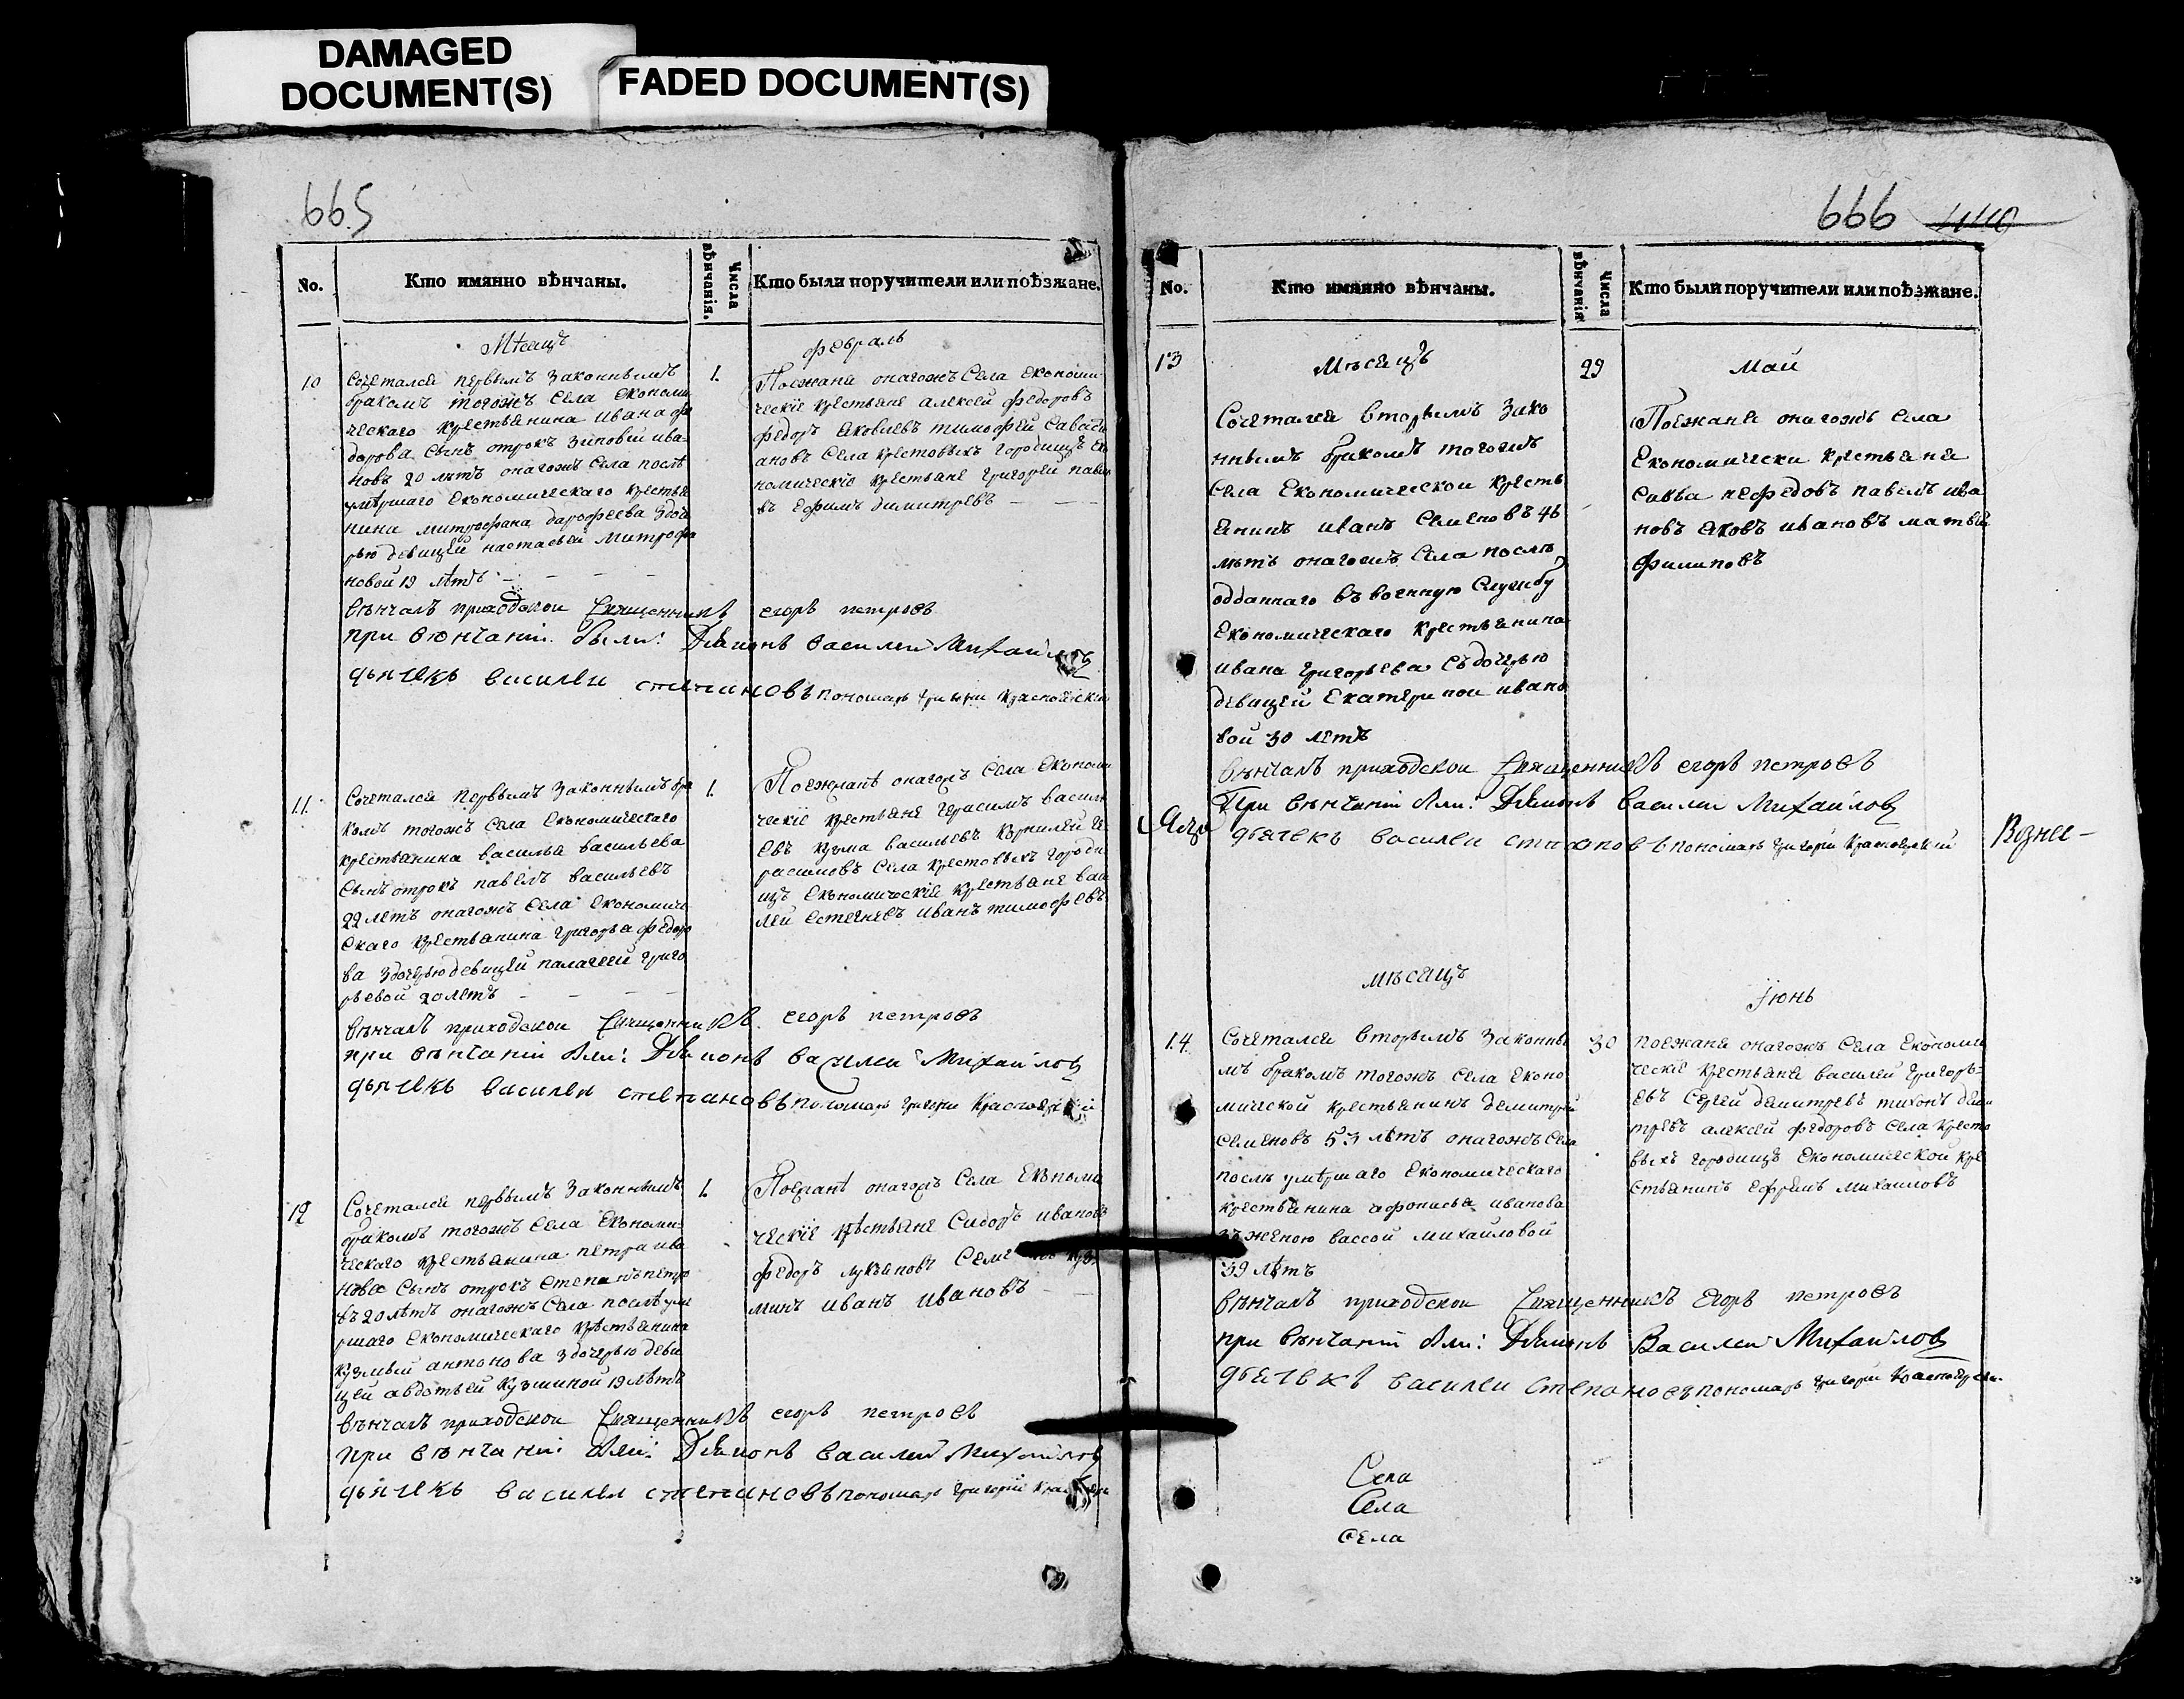 DAMAGED
DOCUMENT(S)
FADED DOCUMENT(S)
665
No.
Кто имянно вѣнчаны.
Числа вѣнчанія.
Кто были поручители или поѣзжане.
Мѣсяцъ
февраль
10
Сочетался первымъ законнымъ
бракомъ тогожъ села Економи
ческаго крестьянина ивана фе
дорова сынъ отрокъ зиновеи ива
новъ 20 лѣтъ онагожъ села послѣ
умѣршаго Економическаго крестья
нина митрофана дарофеева здоче
рью девицеи настасьеи митрофа
новой 19 лѣтъ
1.
Поезжаня онагожъ Села Економи
ческіе крестьяня алексеи федоровъ
федоръ яковлевъ тимофеи
ановъ Села крестовыхъ городищъ еко
номическіе крестьяне григореи павло
въ ефимъ димитревъ
вѣнчалъ приходской священникъ егоръ петровъ
при вѣнчаніи были: Діаконъ василеи Михаиловъ
дьячекъ василеи степановъ пономарь григореи красноярскіи
11.
Сочетался первымъ законнымъ бра
комъ тогожъ села Економическаго
крестьянина василья васильева
сынъ отрокъ павелъ васильевъ
22 лѣтъ онагожъ села Економиче
скаго крестьянина григорья федоро
ва здочерью девицеи палагееи григо
рьевой 20 летъ
1.
Поезжанѣ онагожъ Села Економи
ческіе крестьяне герасимъ василь
евъ кузма васильевъ корнилеи ге
расимовъ Села крестовыхъ городи
щъ Економическіе крестьяне васи
леи естегнеевъ иванъ тимофеевъ
вѣнчалъ приходской священникъ егоръ петровъ
при вѣнчаніи были: Діаконъ василеи Михаиловъ
дьячекъ василеи степановъ пономарь григореи красноярскій
12
Сочетался первымъ законнымъ
бракомъ тогожъ села Економи
ческаго крестьянина петра ива
нова сынъ отрокъ степанъ петро
въ 20 лѣтъ онагожъ села послѣ уме
ршаго економическаго крестьянина
кузмьи антонова здочерью деви
цеи авдотьеи кузминой 19 лѣтъ
1.
Поезжанѣ онагожъ Села Економи
ческіе крестьяне Сидоръ ивановъ
федоръ лукьяновъ семенъ куз
минъ иванъ ивановъ
вѣнчалъ приходской священникъ егоръ петровъ
при вѣнчаніи были: Діаконъ василеи Михаиловъ
дьячекъ василеи степановъ пономарь григореи
666
No.
Кто имянно вѣнчаны.
Числа вѣнчанія
Кто были поручители или поѣзжане.
13
Мѣсяцъ
29
Май
Сочетался вторымъ зако
ннымъ бракомъ тогожъ
села Економической кресть
янинъ иванъ Семеновъ 46
лѣтъ онагожъ Села послѣ
одданнаго въ военную службу
Економическаго крестьянина
ивана григорьева съ дочерью
девицеи екатериной ивано
вой 30 летъ
Поезжаня онагожъ села
Економически крестьяня
савва нефедовъ павелъ ива
новъ яковъ ивановъ матвеи
филиповъ
вѣнчалъ приходской священникъ егоръ петровъ
При вѣнчаніи были: Діаконъ василеи Михаиловъ
дьячекъ василеи степановъ пономарь григореи красноярскій
Вазне-
мѣсяцъ
іюнь
14
Сочетался вторымъ законны
мъ бракомъ тогожъ села Еконо
мической крестьянинъ демитреи
семеновъ 53 лѣтъ онагожъ села
послѣ умѣршаго Економическаго
крестьянина афонисья иванова
зъ женою вассой михаиловой
39 лѣтъ
30
поезжаня онагожъ Села Економи
ческіе крестьяня василеи григорь-
евъ Сергеи демитревъ тихонъ деми
тревъ алексеи федоровъ села кресто
выхъ городищъ Економической кре
стьянинъ ефремъ михаиловъ
вѣнчалъ приходской священникъ Егоръ петровъ
при вѣнчаніи были: Діаконъ Василеи Михаиловъ
дьячекъ василеи степановъ пономарь григореи
Села
Села
села